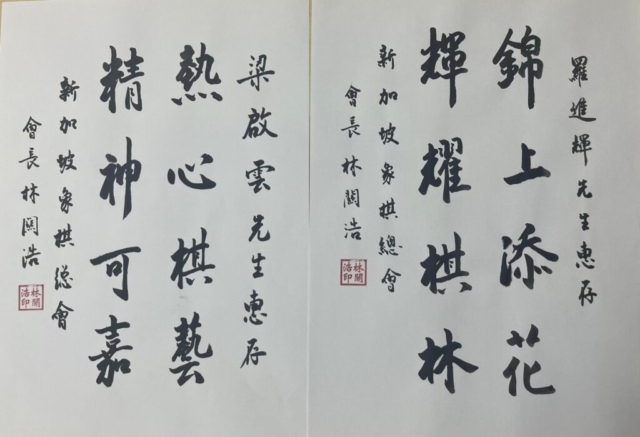 羅進輝先生惠存
錦上添花
輝耀棋林
新加坡象棋總會
會長林關浩
林關浩印
梁啟雲先生惠存
熱心棋藝
精神可嘉
新加坡象棋總會
會長林關浩
林關浩印